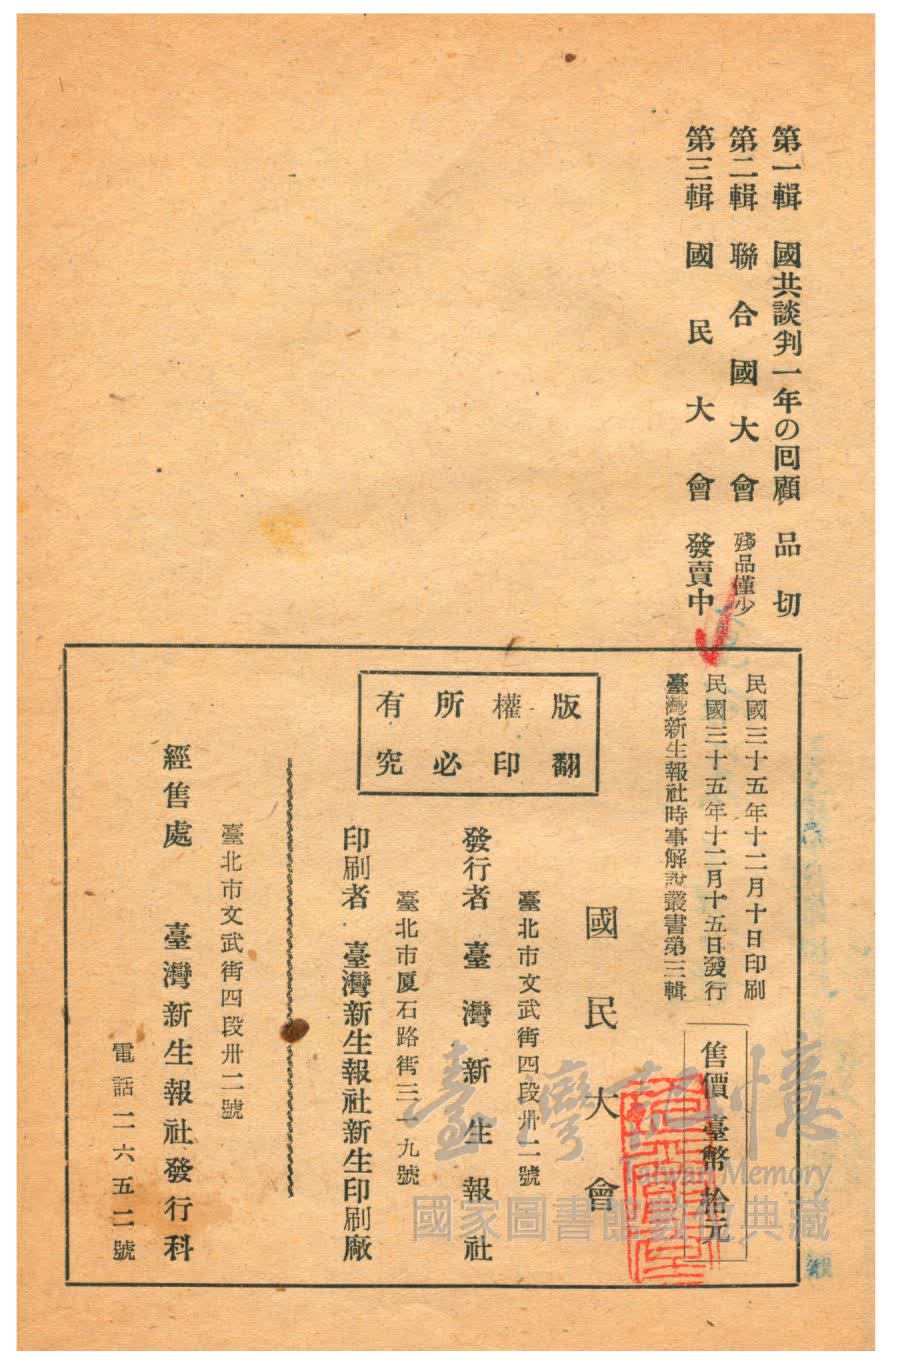 第一輯　國共談判一年の囘顧　品切
第二輯　聯合國大會　殘品僅少
第三輯　國民大會　發賣中
民國三十五年十二月十日印刷
民國三十五年十二月十五日發行
臺灣新生報社時事解說叢書第三輯
售價　臺幣　拾元
國民大會
版權所有
翻印必究
臺北市文武街四段卅二號
發行者　臺灣新生報社
臺北市厦石路街三一九號
印刷者　臺灣新生報社新生印刷廠
臺北市文武街四段卅二號
經售處　臺灣新生報社發行科
電話二六五二號
臺灣記憶
Taiwan Memory
國家圖書館數位典藏